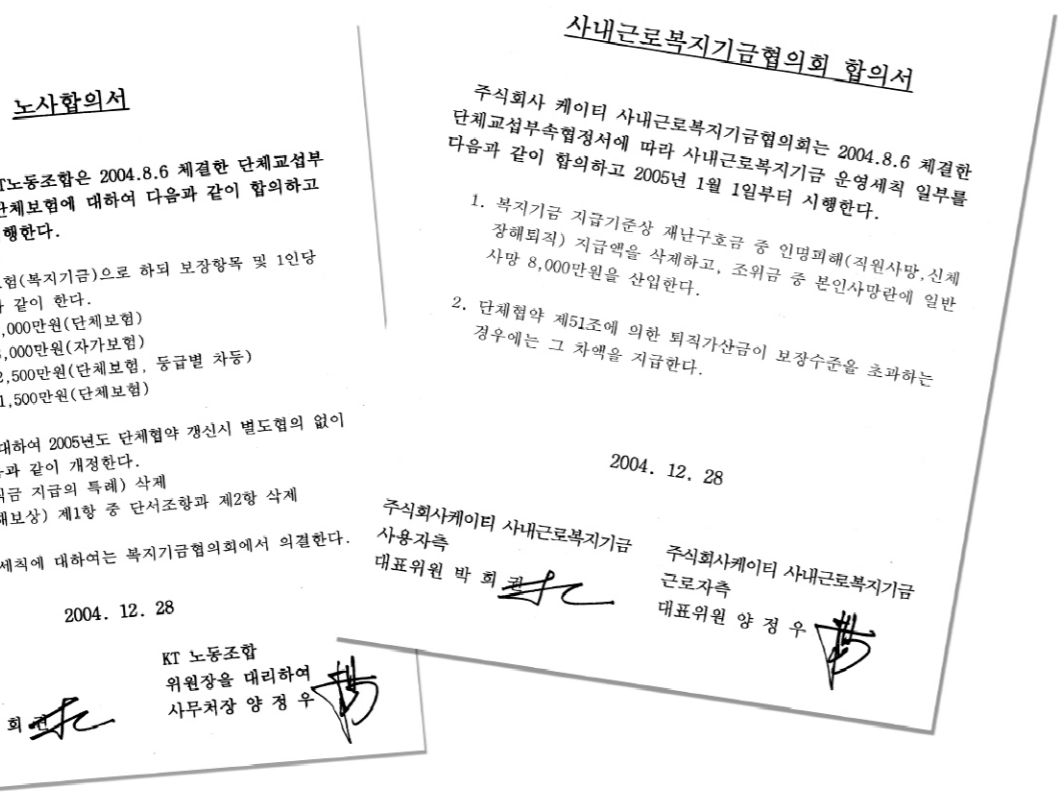 노사합의서
T노동조합은 2004.8.6 체결한 단체교섭부
단체보험에 대하여 다음과 같이 합의하고
행한다.
험(복지기금)으로 하되 보장항목 및 1인당
과 같이 한다.
,000만원(단체보험)
,000만원(자가보험)
2,500만원(단체보험, 등급별 차등)
1,500만원(단체보험)
대하여 2005년도 단체협약 갱신시 별도협의 없이
음과 같이 개정한다.
직금 지급의 특례) 삭제
해보상) 제1항 중 단서조항과 제2항 삭제
세칙에 대하여는 복지기금협의회에서 의결한다.
2004. 12. 28
KT 노동조합
위원장을 대리하여
사무처장 양 정 우
회 권
사내근로복지기금협의회 합의서
주식회사 케이티 사내근로복지기금협의회는 2004.8.6 체결한
단체교섭부속협정서에 따라 사내근로복지기금 운영세칙 일부를
다음과 같이 합의하고 2005년 1월 1일부터 시행한다.
1. 복지기금 지급기준상 재난구호금 중 인명피해(직원사망,신체
장해퇴직) 지급액을 삭제하고, 조위금 중 본인사망란에 일반
사망 8,000만원을 산입한다.
2. 단체협약 제51조에 의한 퇴직가산금이 보장수준을 초과하는
경우에는 그 차액을 지급한다.
2004. 12. 28
주식회사케이티 사내근로복지기금
사용자측
대표위원 박 희 권
주식회사케이티 사내근로복지기금
근로자측
대표위원 양 정 우